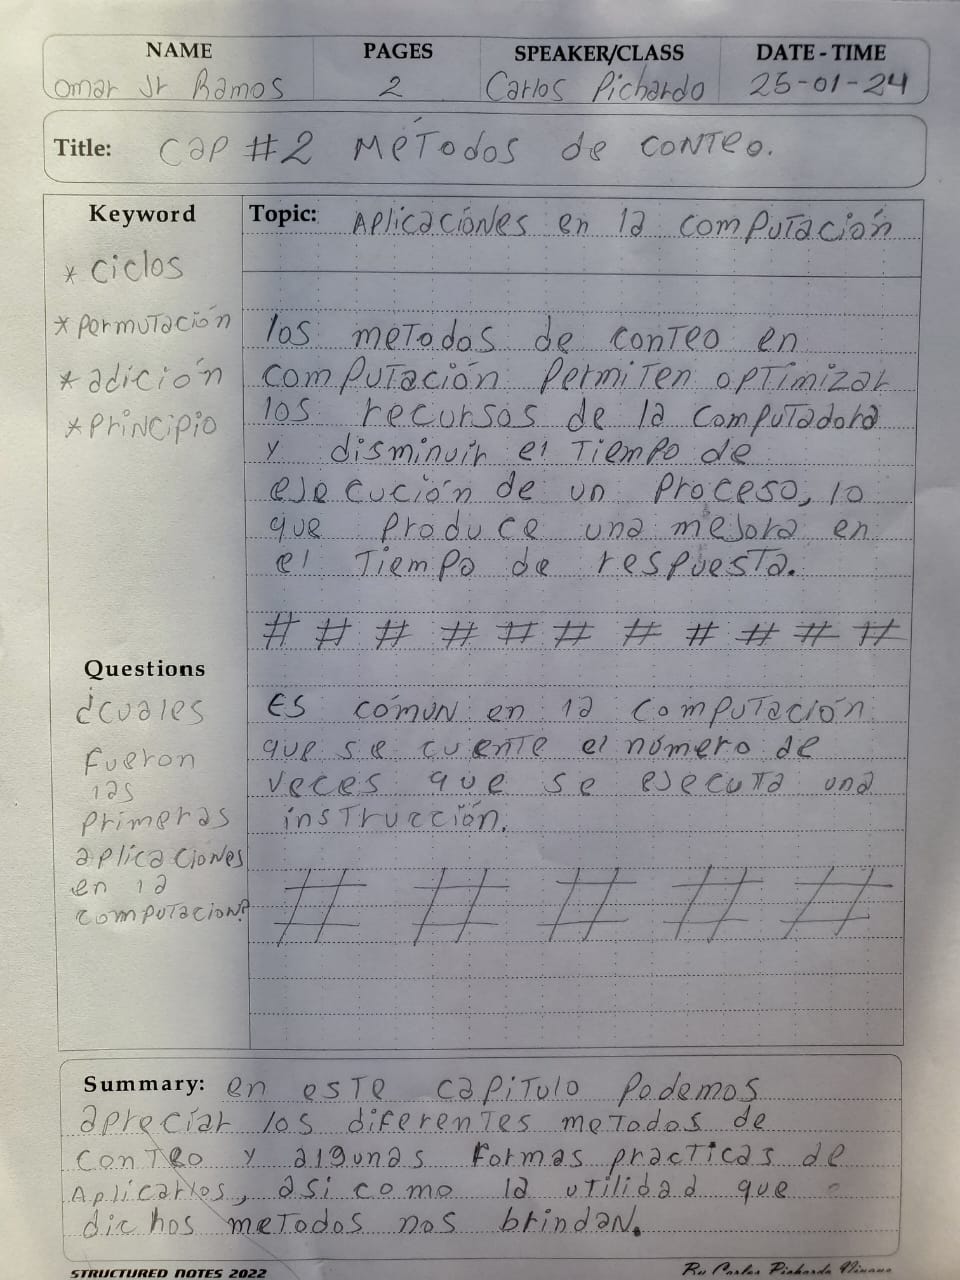 NAME PAGES SPEAKER/CLASS DATE - TIME
Omar Jr Ramos 2 Carlos Pichardo 25-01-24
Title: Cap #2 Métodos de conteo.
Keyword
* Ciclos
* Permutación
* adición
* Principio
Topic: Aplicaciónes en la computación
los metodos de conteo en
computación permiten optimizar
los recursos de la computadora
y disminuir el tiempo de
ejecución de un proceso, lo
que produce una mejora en
el tiempo de respuesta.
# # # # # # # # # # #
Questions
¿cuales
fueron
las
primeras
aplicaciones
en la
computacion?
Es cómun en la computación
que se cuente el número de
veces que se ejecuta una
instrucción.
# # # # #
Summary: en este capitulo podemos
apreciar los diferentes metodos de
conteo y algunas formas practicas de
Aplicarlos, asi como la utilidad que
dichos metodos nos brindan.
STRUCTURED NOTES 2022 By Carlos Pichardo